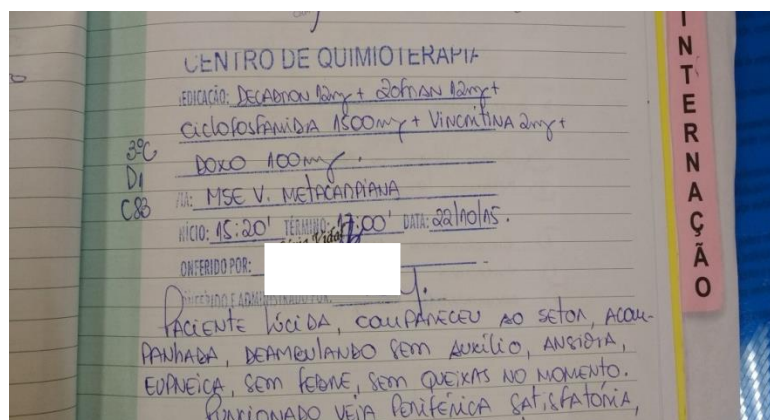 CENTRO DE QUIMIOTERAPIA
EDICAÇÃO: DECADRON 12mg + ZOFRAN 12mg +
CICLOFOSFAMIDA 1500mg + VINCRITINA 2mg +
3ºC
DOXO 100mg.
D1
C83
VIA: MSE V. METACARPIANA
NÍCIO: 15:20' TÉRMINO: 17:00' DATA: 22/10/15.
ONFERIDO POR:
E ADMINISTRADO POR:
PACIENTE LÚCIDA, COMPARECEU AO SETOR, ACOM-
PANHADA, DEAMBULANDO SEM AUXÍLIO, ANSIOSA,
EUPNEICA, SEM FEBRE, SEM QUEIXAS NO MOMENTO.
PUNCIONADO VEIA PERIFÉRICA SATISFATÓRIA,
INTERNAÇÃO